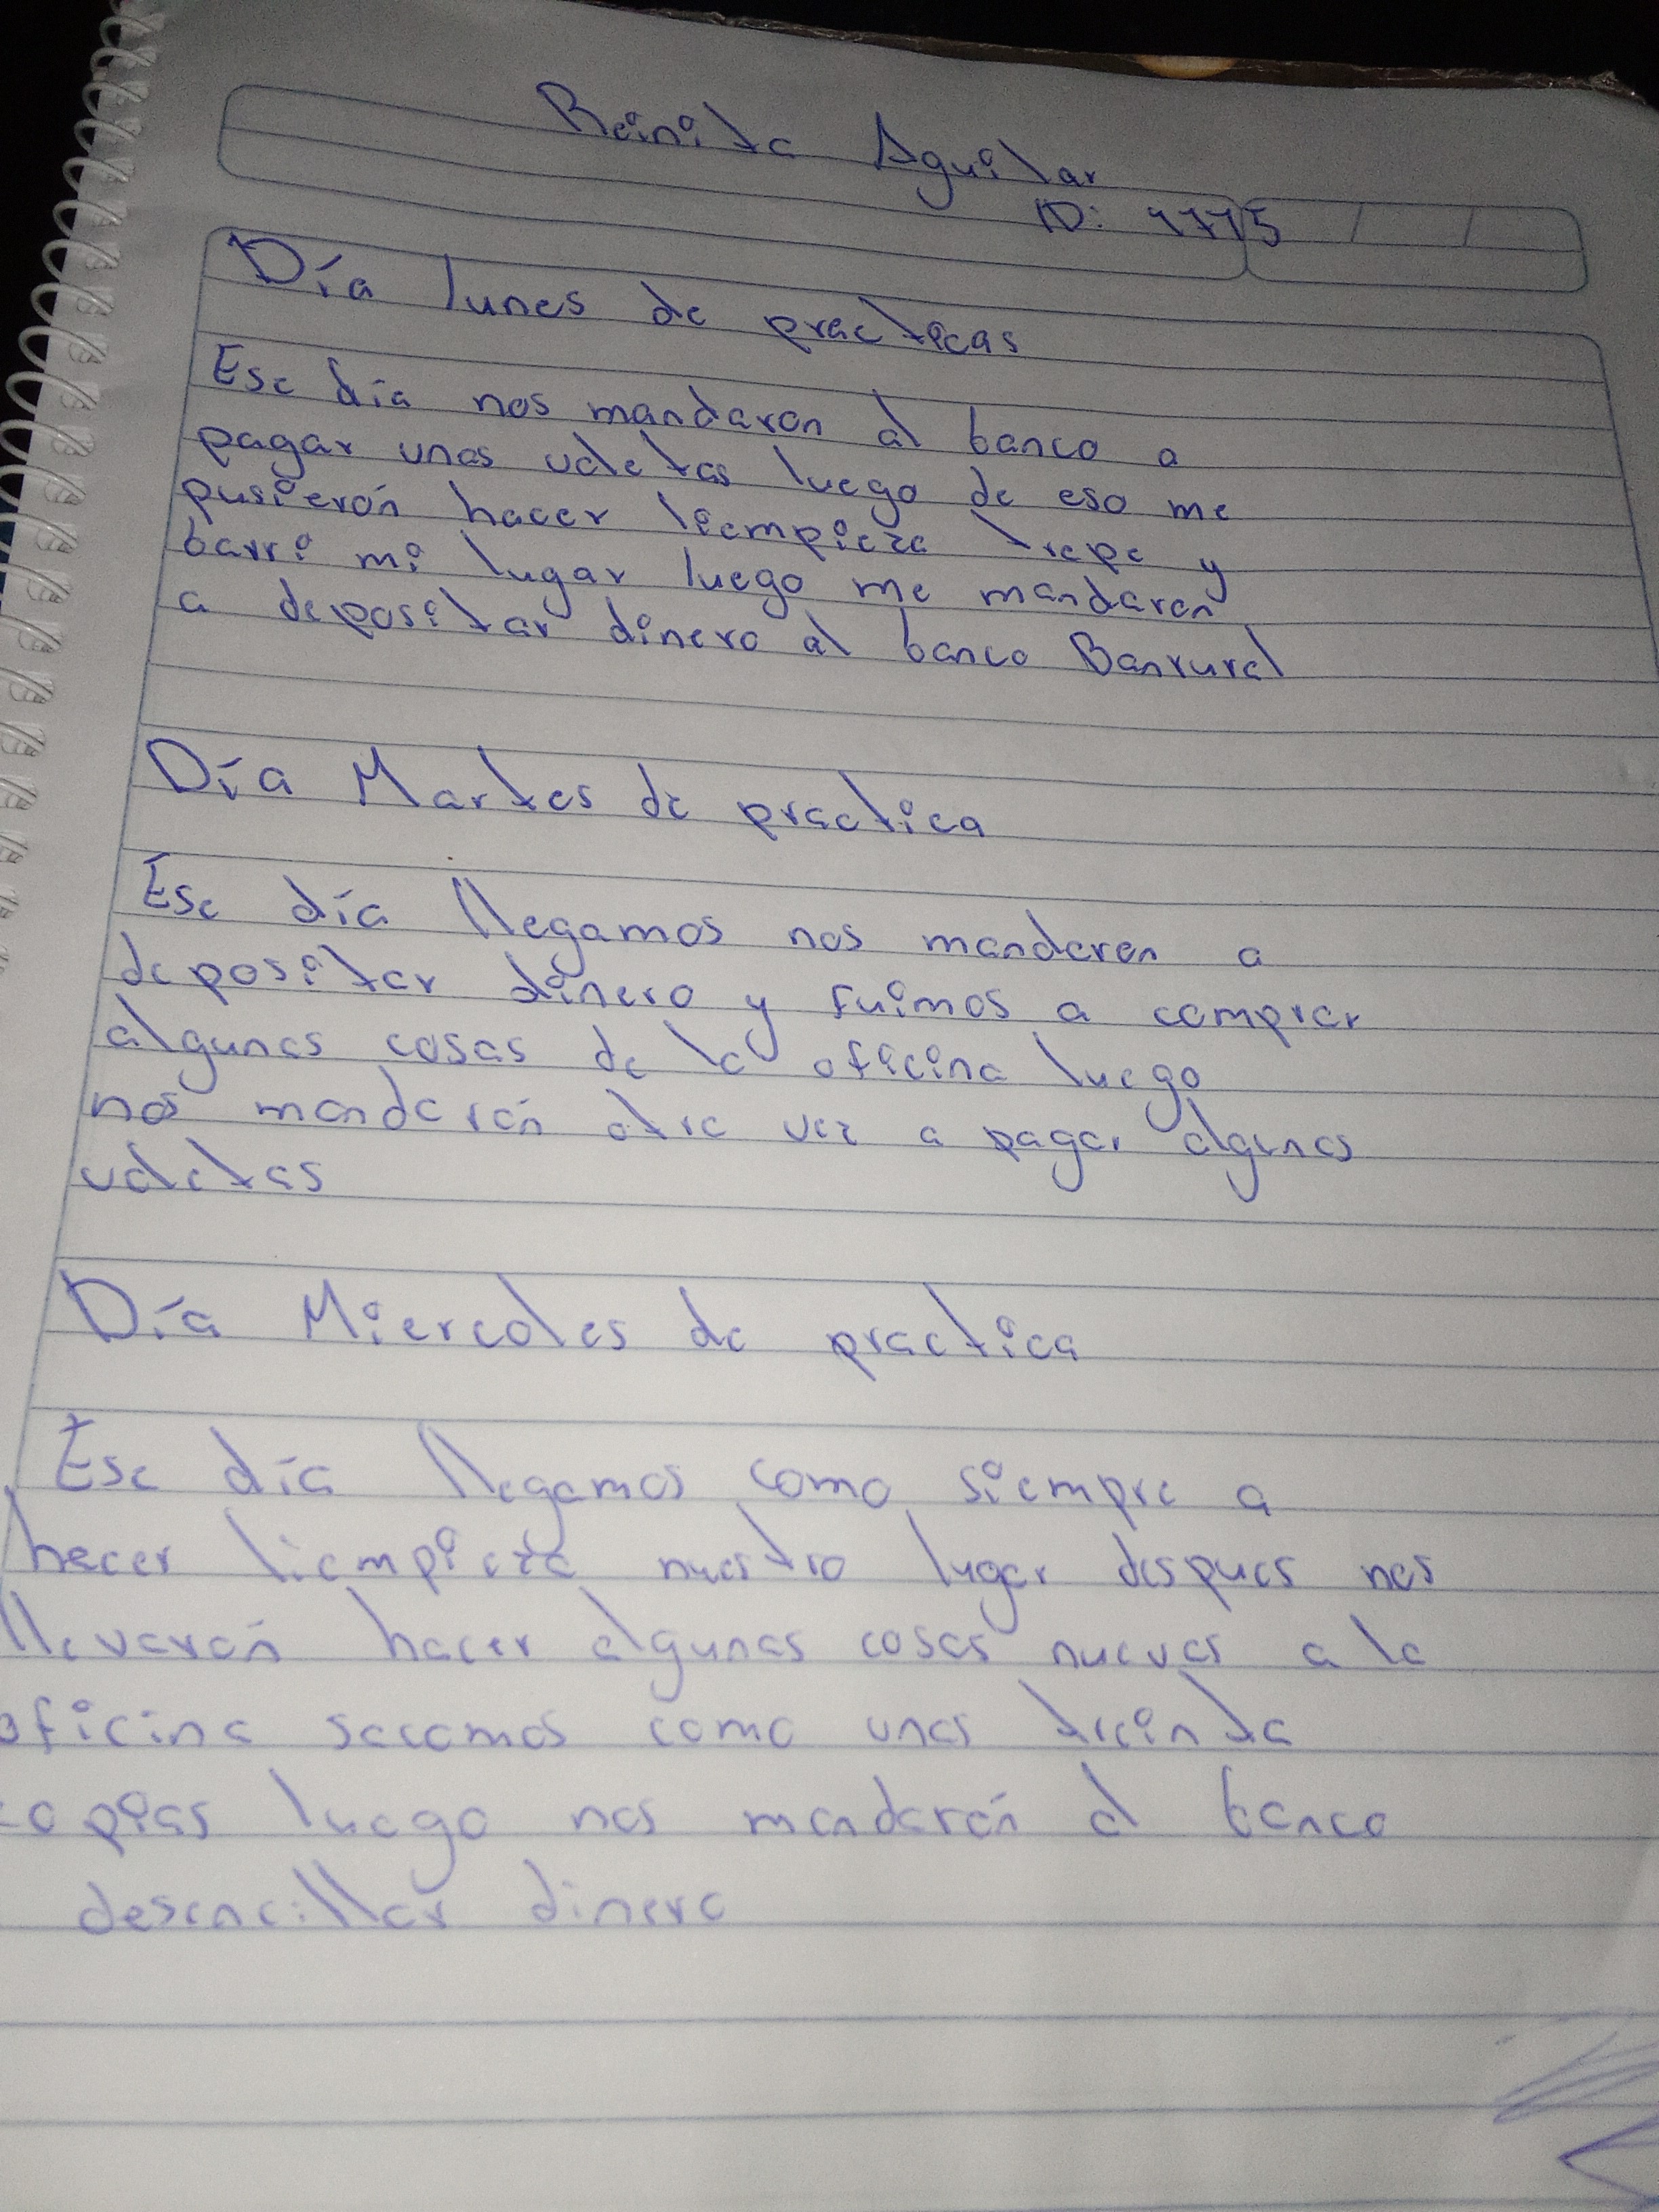 Reinita Aguilar
ID: 9775
Día lunes de practicas
Ese día nos mandaron al banco a
pagar unas voletas luego de eso me
pusierón hacer liempieza trepe y
barri mi lugar luego me mandaron
a depositar dinero al banco Banrural
Día Martes de practica
Ese día llegamos nos mandaron a
depositar dinero y fuimos a comprar
algunas cosas de la oficina luego
nos mandarón otra vez a pagar algunas
voletas
Día Miercoles de practica
Ese día llegamos como siempre a
hacer liempieza nuestro lugar despues nos
llevarón hacer algunas cosas nuevas a la
oficina sacamos como unas treinta
copias luego nos mandarón al banco
desencillar dinero